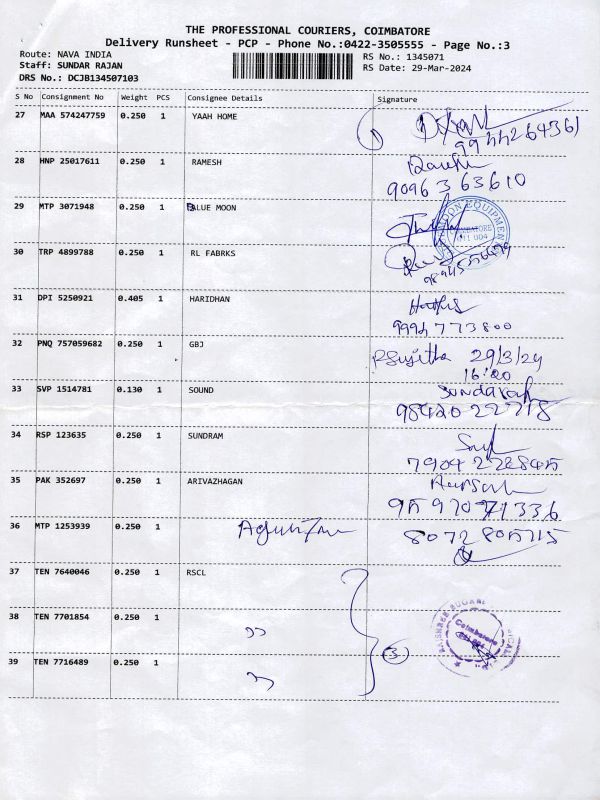 THE PROFESSIONAL COURIERS, COIMBATORE
Delivery Runsheet - PCP - Phone No.:0422-3505555 - Page No.:3
Route: NAVA INDIA
Staff: SUNDAR RAJAN
DRS No.: DCJB134507103
RS No.: 1345071
RS Date: 29-Mar-2024
S No Consignment No Weight PCS Consignee Details Signature
27 MAA 574247759 0.250 1 YAAH HOME
9944264361
28 HNP 25017611 0.250 1 RAMESH
9096363610
29 MTP 3071948 0.250 1 BLUE MOON
30 TRP 4899788 0.250 1 RL FABRKS
31 DPI 5250921 0.405 1 HARIDHAN
9994773800
32 PNQ 757059682 0.250 1 GBJ
RSujitha 29/3/24
16:20
33 SVP 1514781 0.130 1 SOUND
9842022718
34 RSP 123635 0.250 1 SUNDRAM
7904222845
35 PAK 352697 0.250 1 ARIVAZHAGAN
9597071336
36 MTP 1253939 0.250 1
8072805715
37 TEN 7640046 0.250 1 RSCL
38 TEN 7701854 0.250 1 ''
39 TEN 7716489 0.250 1 ''
3
Coimbatore